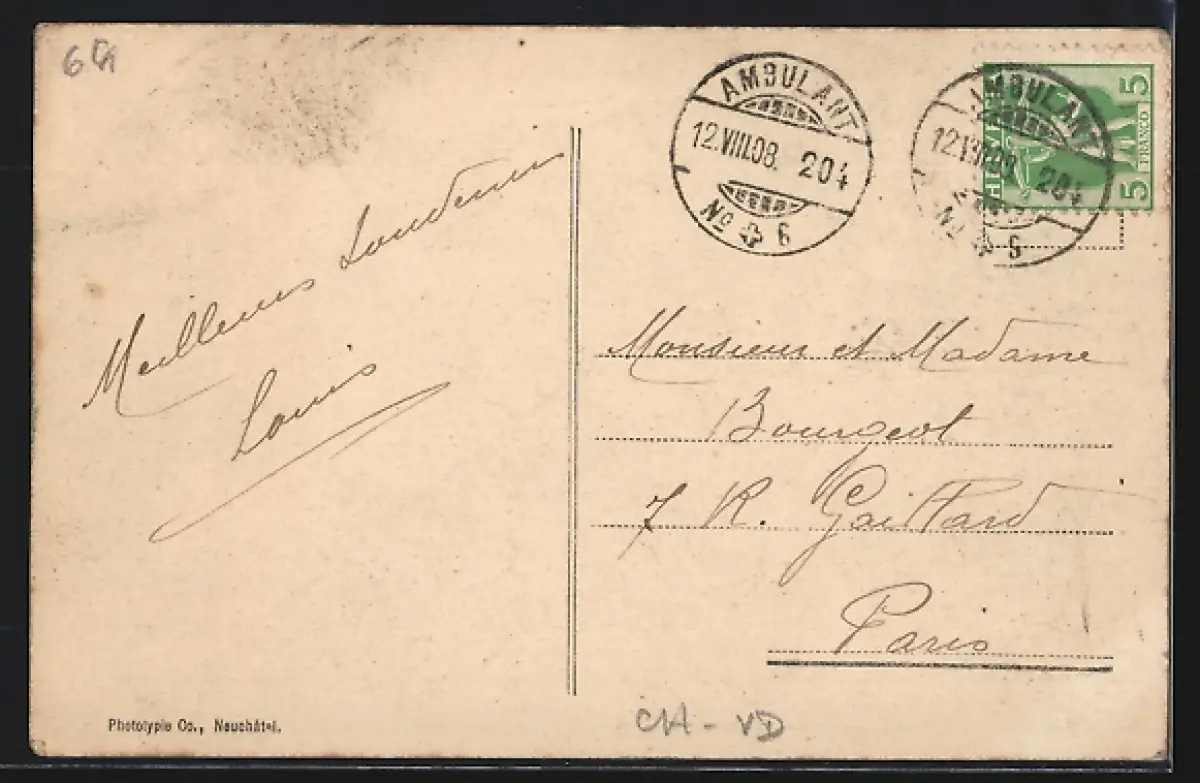 AMBULANT
12.VIII.08. 204
No 6
AMBULANT
204
No 6
HELVE
5 5
FRANCO
Meilleurs
Louis
Monsieur et Madame
Bourgeot
7 R. Gaillard
Paris
Phototypie Co., Neuchâtel.
CH - VD